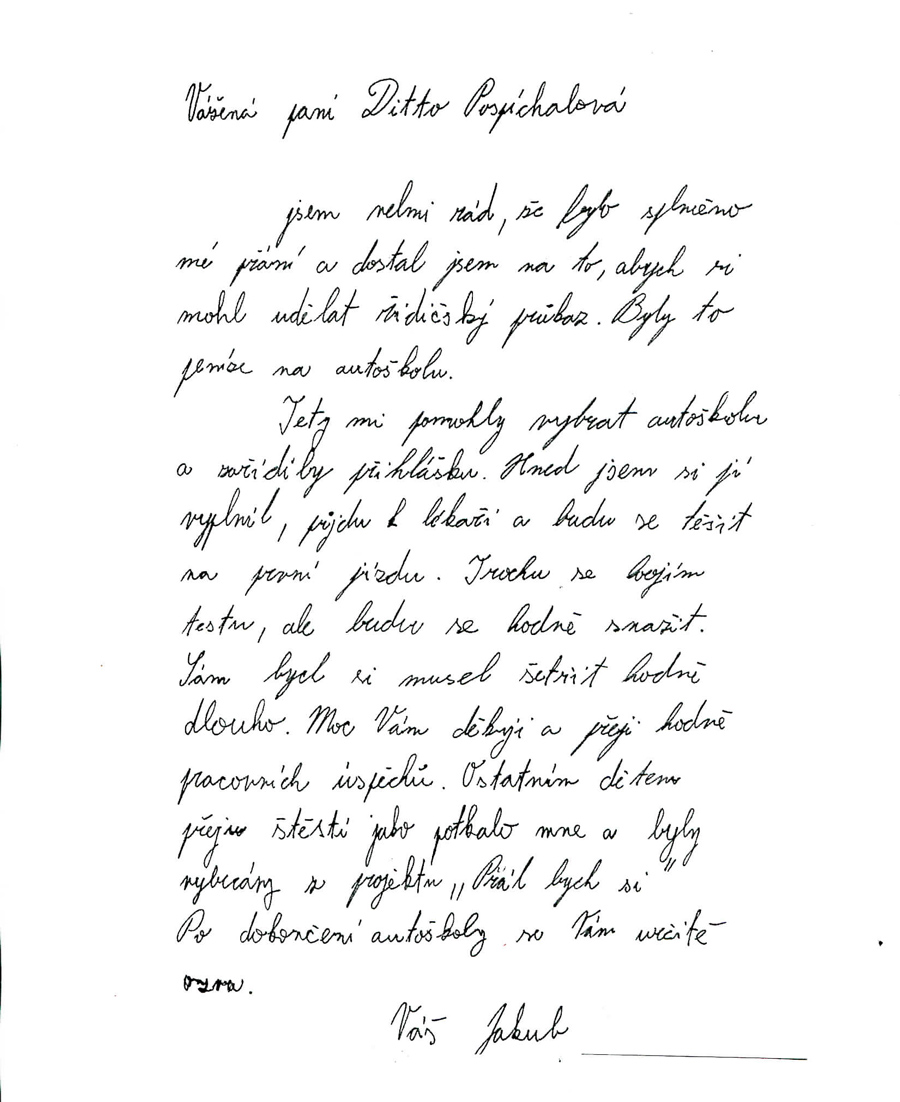 Vášená paní Ditto Pospíchalová
jsem velmi rád, že bylo splněno
mé přání a dostal jsem na to, abych si
mohl udělat řidičský průkaz. Byly to
peníze na autoškolu.
Tety mi pomohly vybrat autoškolu
a zařídily přihlášku. Hned jsem si jí
vyplnil, půjdu k lékaři a budu se těšit
na první jízdu. Trochu se bojím
testu, ale budu se hodně snažit.
Sám bych si musel šetřit hodně
dlouho. Moc Vám děkuji a přeji hodně
pracovních úspěchů. Ostatním dětem
přeju štěstí jako potkalo mne a byly
vybrány z projektu „Přál bych si"
Po dokončení autoškoly se Vám určitě
ozvu.
Váš Jakub